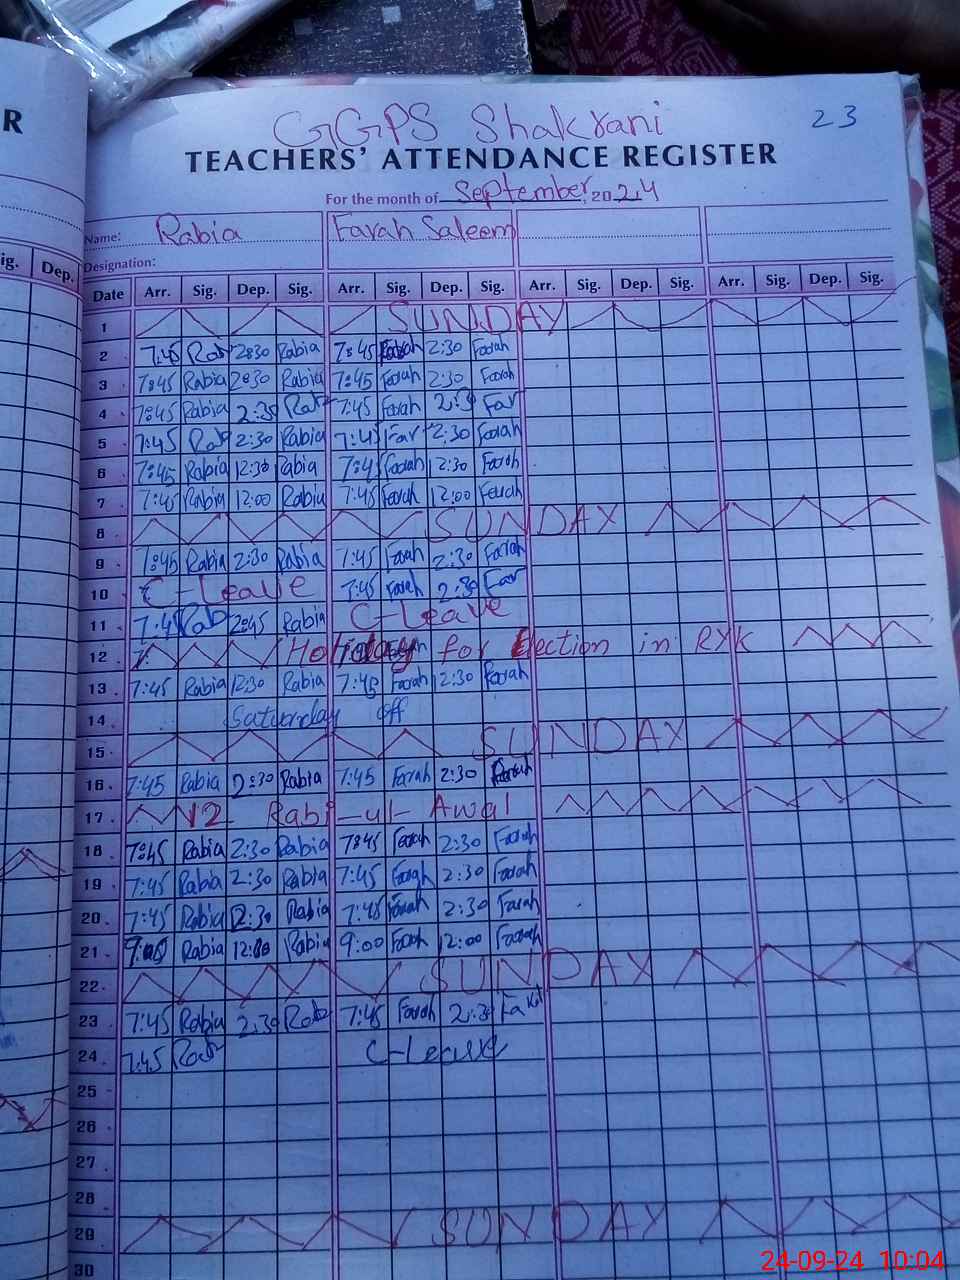 R
GGPS Shakrani 23
TEACHERS' ATTENDANCE REGISTER
For the month of September, 2024
Name: Rabia Farah Saleem
Designation:
ig. Dep. Date Arr. Sig. Dep. Sig. Arr. Sig. Dep. Sig. Arr. Sig. Dep. Sig. Arr. Sig. Dep. Sig.
1 SUNDAY
2 7:45 Rab 2:30 Rabia 7:45 Farah 2:30 Farah
3 7:45 Rabia 2:30 Rabia 7:45 Farah 2:30 Farah
4 7:45 Rabia 2:30 Rab 7:45 Farah 2:3 Far
5 7:45 Rab 2:30 Rabia 7:4 Far 2:30 Farah
6 7:45 Rabia 12:30 Rabia 7:4 Farah 12:30 Farah
7 7:45 Rabia 12:00 Rabia 7:45 Farah 12:00 Farah
8 SUNDAY
9 7:45 Rabia 2:30 Rabia 7:45 Farah 2:30 Farah
10 C-Leave 7:45 Farah 2:30 Far
11 7:4 Rab 2:45 Rabia C-Leave
12 Holiday for Election in RYK
13 7:45 Rabia 12:30 Rabia 7:45 Farah 12:30 Farah
14 Saturday off
15 SUNDAY
16 7:45 Rabia 2:30 Rabia 7:45 Farah 2:30 Farah
17 12 Rabi-ul-Awal
18 7:45 Rabia 2:30 Rabia 7:45 Farah 2:30 Farah
19 7:45 Rabia 2:30 Rabia 7:45 Farah 2:30 Farah
20 7:45 Rabia 2:30 Rabia 7:45 Farah 2:30 Farah
21 9:00 Rabia 12:00 Rabia 9:00 Farah 12:00 Farah
22 SUNDAY
23 7:45 Rabia 2:30 Rab 7:45 Farah 2:30
24 7:45 Rab C-Leave
25
26
27
28
29 SUNDAY
30
24-09-24 10:04